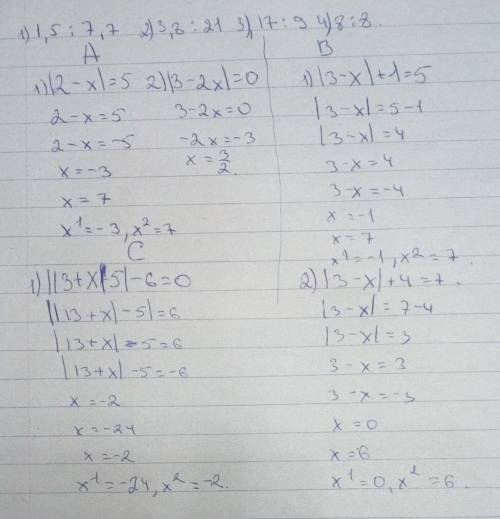 1) 1,5 : 7,7 2) 3,8 : 21 3) 17 : 9 4) 8 : 8.
A
1) |2-x|=5 2) |3-2x|=0
2-x=5 3-2x=0
2-x=-5 -2x=-3
x=-3 x=3/2.
x=7
x¹=-3, x²=7
B
1) |3-x|+1=5
|3-x|=5-1
|3-x|=4
3-x=4
3-x=-4
x=-1
x=7
x¹=-1, x²=7.
2) |3-x|+4=7.
|3-x|=7-4
|3-x|=3
3-x=3
3-x=-3
x=0
x=6
x¹=0, x²=6.
C
1) ||13+x|-5|-6=0
||13+x|-5|=6
|13+x|-5=6
|13+x|-5=-6
x=-2
x=-24
x=-2
x¹=-24, x²=-2.